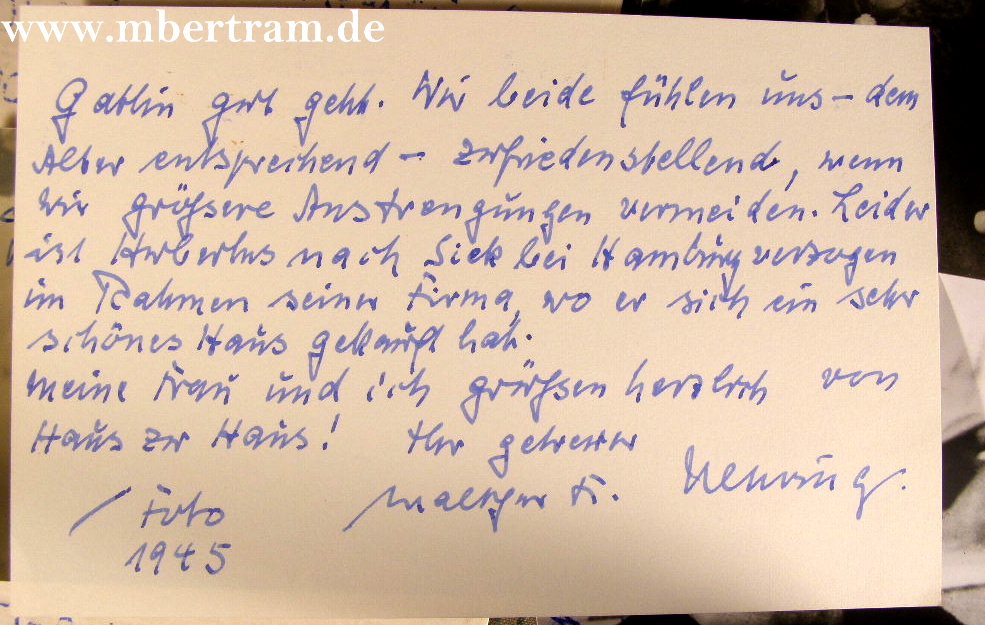 www.mbertram.de
Gattin gut geht. Wir beide fühlen uns – dem
Alter entsprechend – zufriedenstellend, wenn
wir größere Anstrengungen vermeiden. Leider
ist Hubertus nach Siek bei Hamburg verzogen
im Rahmen seiner Firma, wo er sich ein sehr
schönes Haus gekauft hat.
Meine Frau und ich grüßen herzlich von
Haus zu Haus! Ihr getreuer
/ Foto Walther K. Nehring.
1945